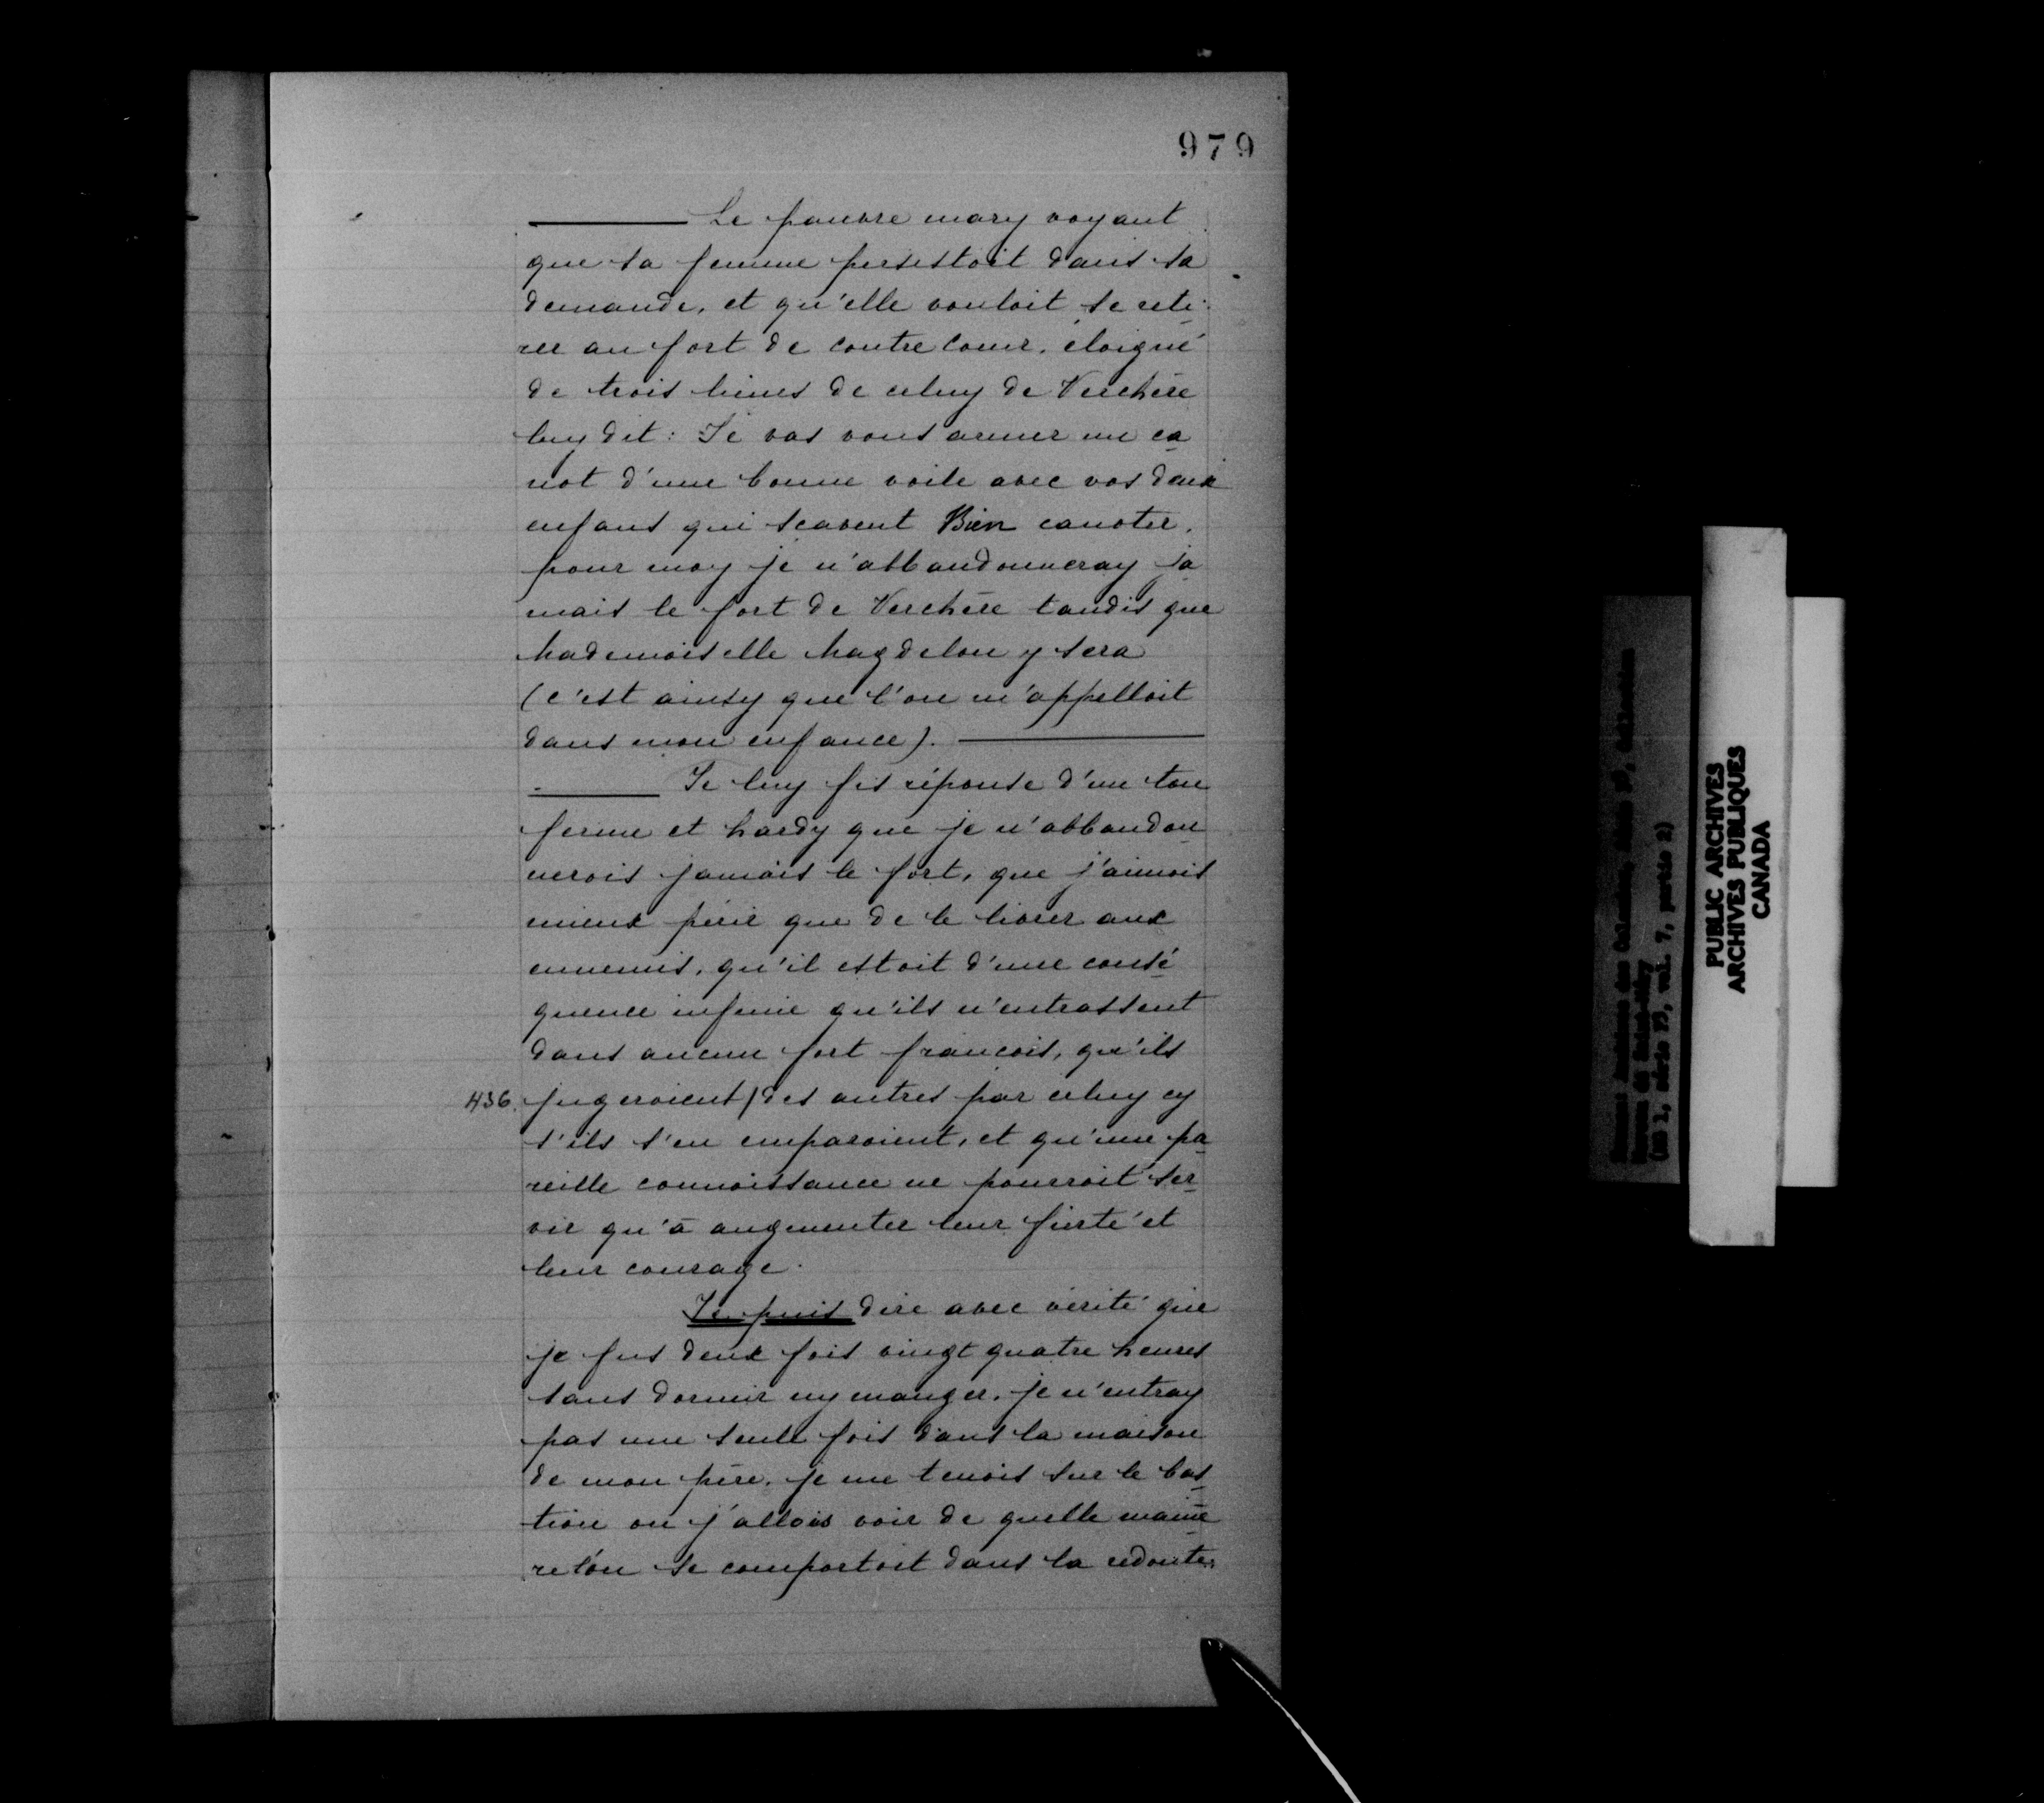 979
Le pauvre mary voyant
que sa femme persistoit dans sa
demande, et qu'elle vouloit se reti-
rer au fort de contre coeur, éloigné
de trois lieues de celuy de Verchère
luy dit : Je vas vous armer un ca
not d'une bonne voile avec vos deux
enfans qui scavent Bien canoter,
pour moy je n'abbandonneray ja
mais le fort de Verchère tandis que
Mademoiselle Magdelon y sera
(c'est ainsy que l'on m'appelloit
dans mon enfance).
Je luy fis réponse d'un ton
ferme et hardy que je n'abbandon
nerois jamais le fort, que j'aimois
mieux périr que de le livrer aux
ennemis, qu'il estoit d'une consé
quence infinie qu'ils n'entrassent
dans aucun fort francois, qu'ils
436. jugeroient/des autres par celuy cy
s'ils s'en emparoient, et qu'une pa
reille connoissance ne pourroit ser
vir qu'à augmenter leur fierté et
leur courage.
Je puis dire avec vérité que
je fus deux fois vingt quatre heures
sans dormir ny manger. je n'entray
pas une seule fois dans la maison
de mon père. je me tenois sur le bas
tion ou j'allois voir de quelle maniè
re l'on se comportoit dans la redoute.
PUBLIC ARCHIVES
ARCHIVES PUBLIQUES
CANADA
(MG 1, série F3, vol. 7, partie 2)